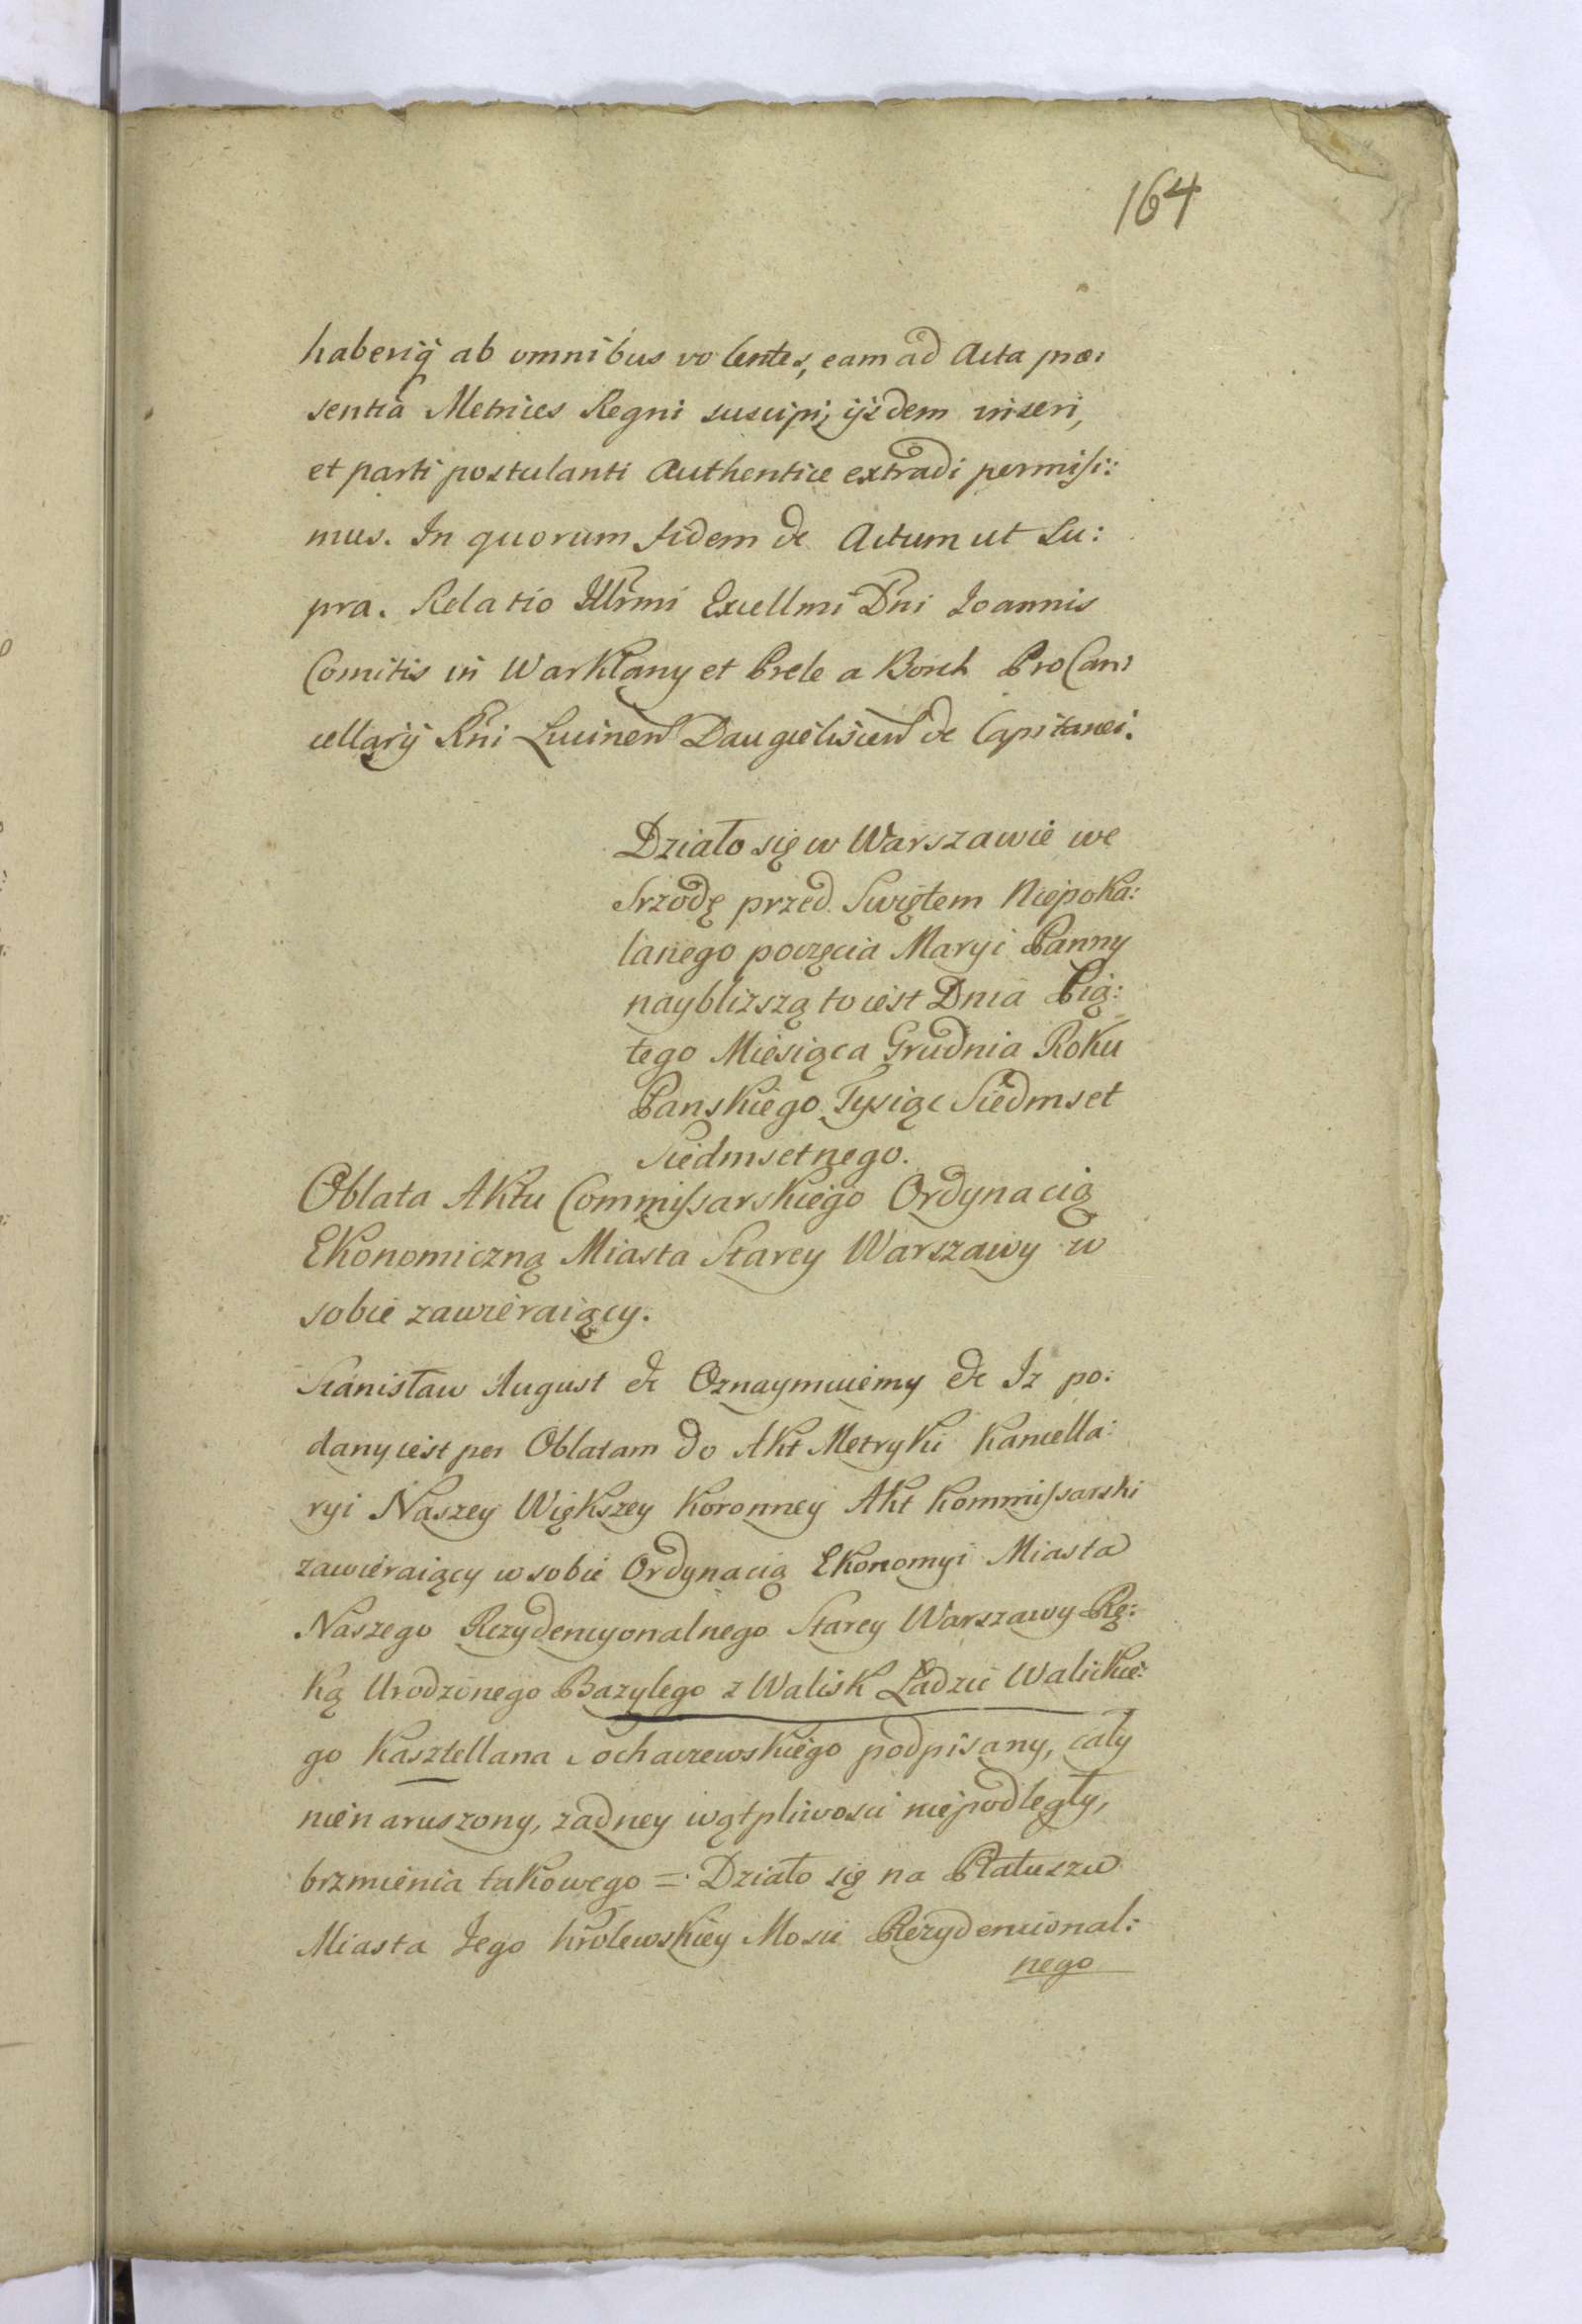 164
haberiq̃ ab omnibus volentes, eam ad Acta præ:
sentia Metrices Regni suscipi, ijsdem inseri,
et parti postulanti Authentice extradi permiſi:
mus. In quorum fidem &c Actum ut Su:
pra. Relatio Illr̃mi Excellmi Dñi Joannis
Comitis in Warklany et Prele a Borch ProCan:
cellarij Rñi Lucinen Daugielisien &c Capitanei.
Działo się w Warszawie we
Srzodę przed Swiętem Niepoka:
lanego poczęcia Maryi Panny
naybliższą to iest Dnia Pią:
tego Miesiąca Grudnia Roku
Panskiego Tysiąc Siedmset
Siedmsetnego.
Oblata Aktu Commiſsarskiego Ordynacią
Ekonomiczną Miasta Starey Warszawy w
sobie zawieraiący.
Stanisław August &c Oznaymuiemy &c Iz po:
dany iest per Oblatam do Akt Metryki Kancella:
ryi Naszey Większey Koronney Akt Kommiſsarski
zawieraiący w sobie Ordynacią Ekonomyi Miasta
Naszego Rezydencyonalnego Starey Warszawy Rę:
ką Urodzonego Bazylego z Walisk Ładzic Walickie:
go Kasztellana Sochaczewskiego podpisany, cały
nienaruszony, zadney wątpliwosci niepodległy,
brzmienia takowego = Działo się na Ratuszu
Miasta Jego Krolewskiey Mosci Rezydencional:
nego